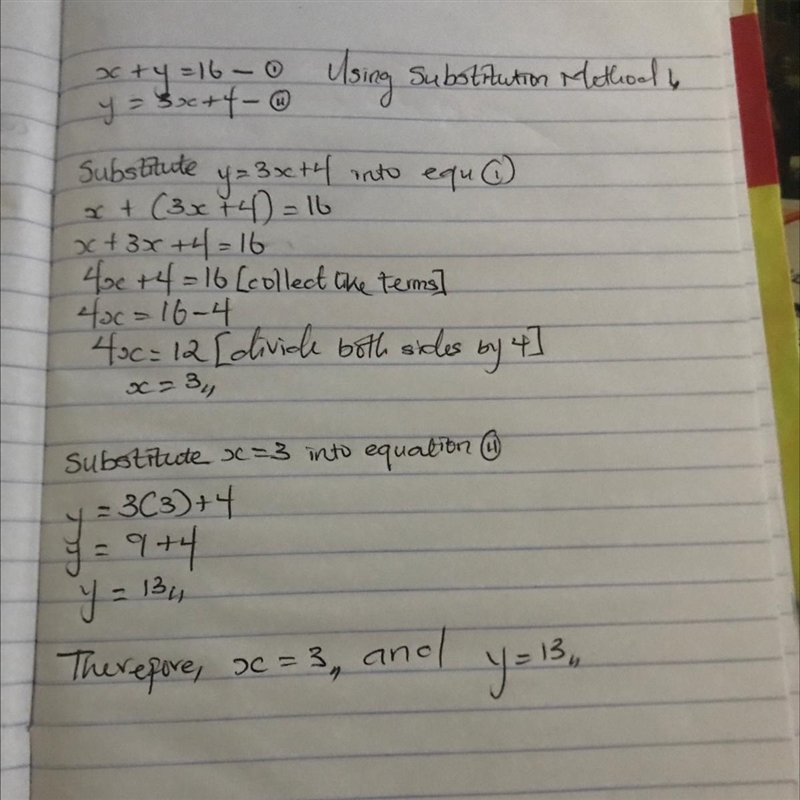 x + y = 16 — ① Using Substitution Method
y = 3x + 4 — ⑪
Substitute y = 3x + 4 into equ ①
x + (3x + 4) = 16
x + 3x + 4 = 16
4x + 4 = 16 [collect like terms]
4x = 16 - 4
4x = 12 [divide both sides by 4]
x = 3,,
Substitute x = 3 into equation ⑪
y = 3(3) + 4
y = 9 + 4
y = 13,,
Therefore, x = 3,, and y = 13,,